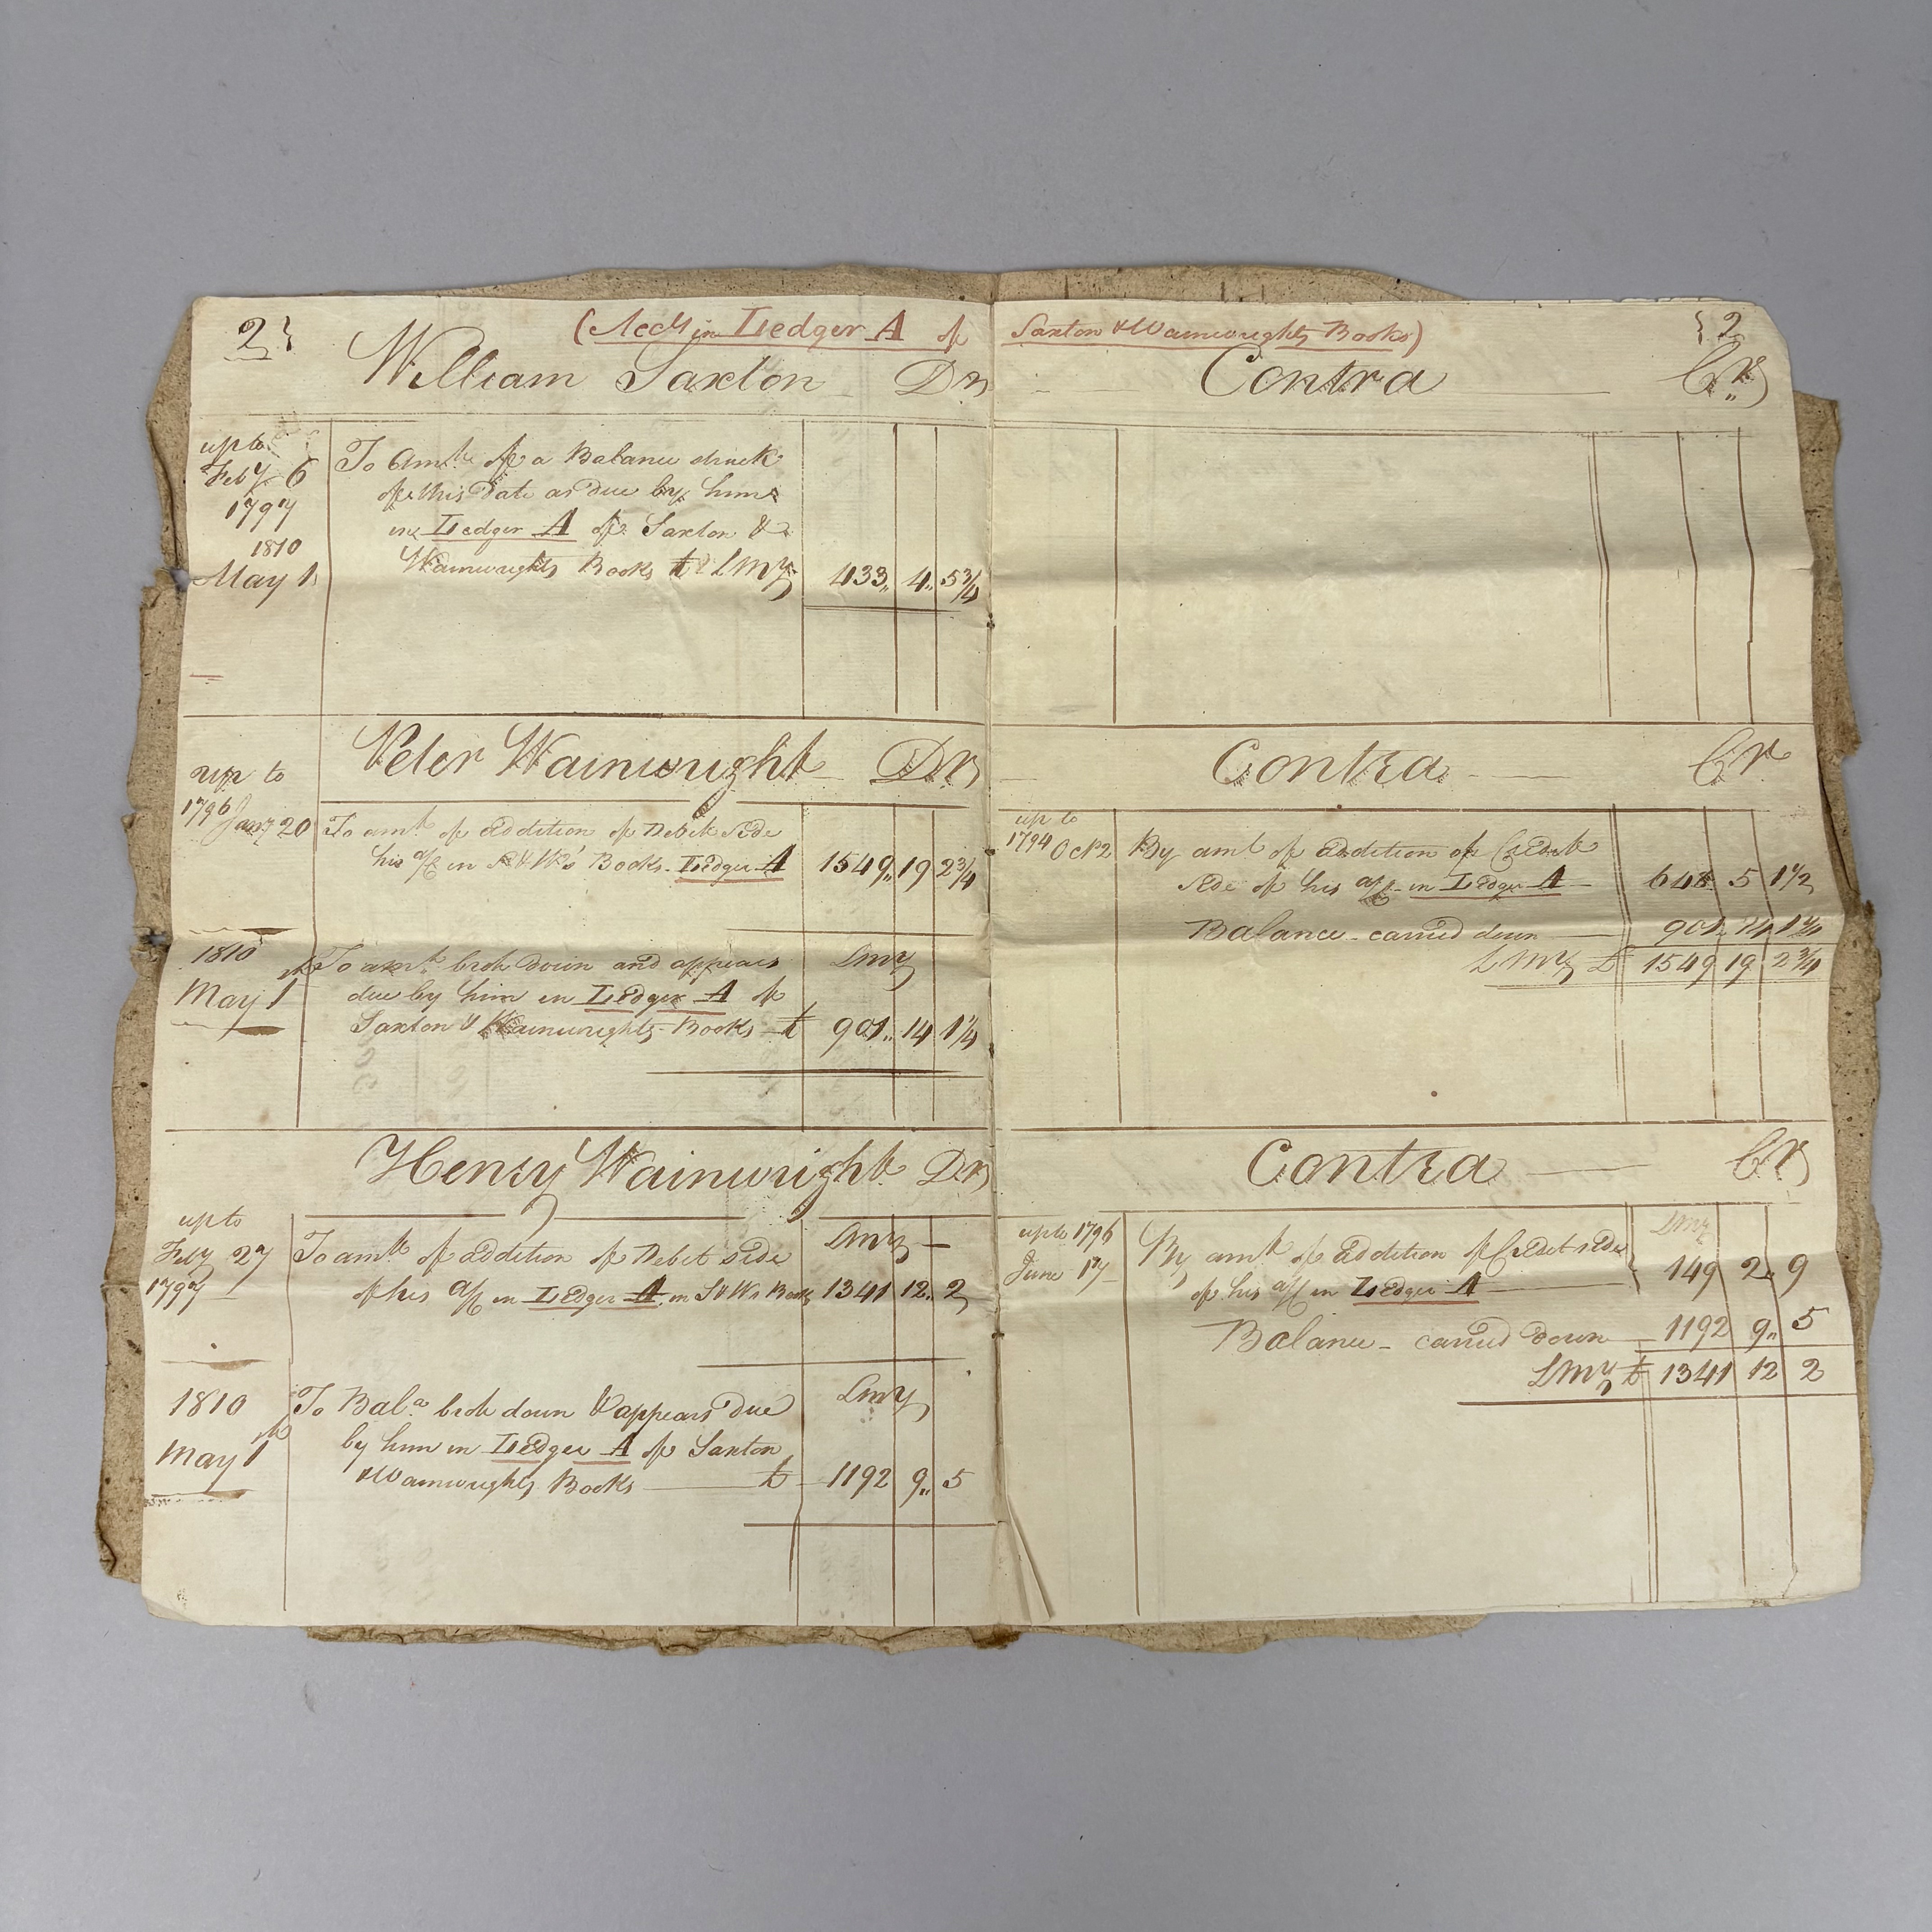 2}
(Acct in Ledger A of
William Saxton Dr
up to
Feby 6
1797
1810
May 1
To Amt of a Balance struck
of this Date as due by him
in Ledger A of Saxton &
Wainwrights Books £ Lmy 433 4 5 3/4
Peter Wainwright Dr
up to
1796 Jany 20
To amt of addition of Debit side
his a/c in S & W's Books Ledger A 1549 19 2 3/4
1810
May 1st
To amt brot down and appears Lmy
due by him in Ledger A of
Saxton & Wainwrights Books £ 901 14 1 1/4
Henry Wainwright Dr
up to
Feby 27
1797
To amt of addition of Debit side Lmy
of his a/c in Ledger A in S & Ws Books 1341 12 2
1810
May 1st
To Bala brot down & appears due Lmy
by him in Ledger A of Saxton
& Wainwrights Books £ 1192 9 5
Saxton & Wainwrights Books)
{2
Contra Cr
Contra Cr
up to
1794 Oct 2
By amt of addition of Credit
side of his a/c in Ledger A 648 5 1 1/2
Balance carried down 901 14 1 1/4
Lmy £ 1549 19 2 3/4
Contra Cr
up to 1796
June 17
Lmy
By amt of addition of Credit side
of his a/c in Ledger A 149 2 9
Balance carried down 1192 9 5
Lmy £ 1341 12 2